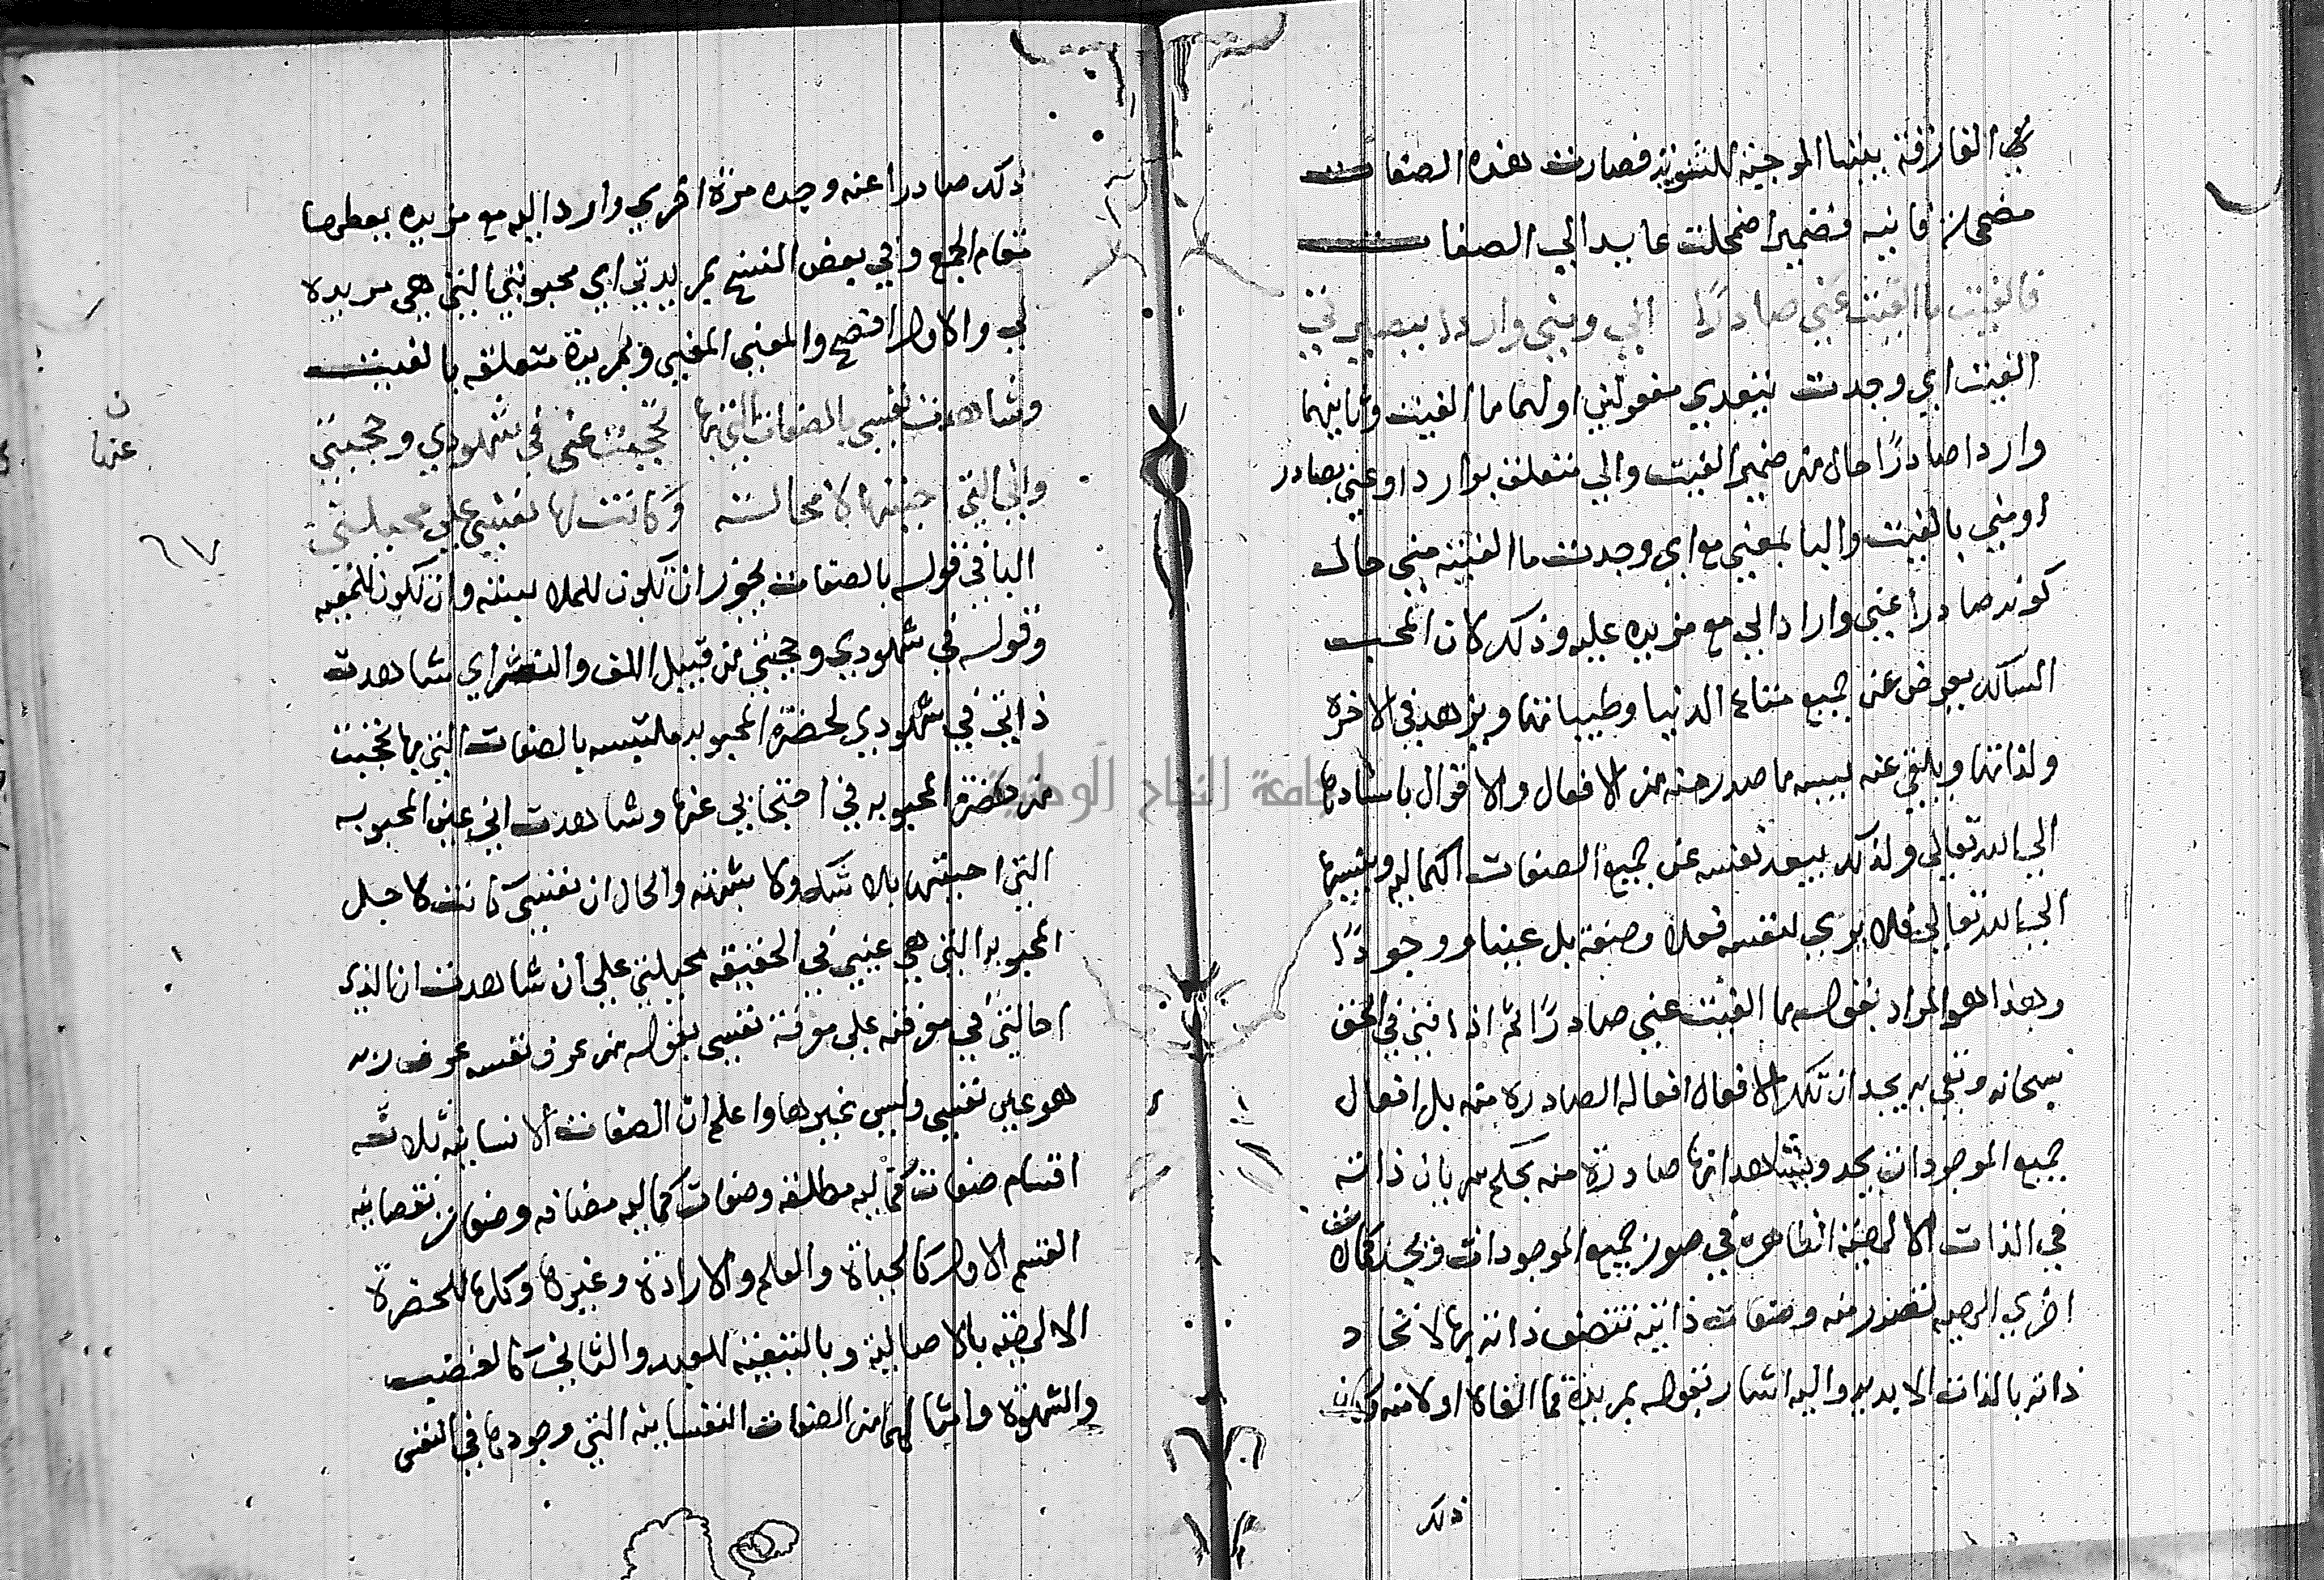 هي الفارقة بيننا الموجبة للثنوية فصارت هذه الصفات
مضمحلة فانيه فضمير اضمحلت عايد الي الصفات
فالفيت ما القيت عني صادرًا الي ومني واردا بمزيدتي
الفيت اي وجدت يتعدي مفعولين اولهما ما القيت وثانيهما
واردا صادرًا حال من ضمير القيت والي متعلق بواردا وعني بصادر
ومني بالقيت والبا بمعني مع اي وجدت ما القيته مني حال
كونه صادرا عني واردا الي مع مزيده عليه وذلك لان المحب
السالك يعرض عن جميع متاع الدنيا وطيباتها ويزهد في الاخرة
ولذاتها ويلقي عنه نسبه ما صدر منه من الافعال والاقوال باسنادها
الي الله تعالي وكذلك يبعد نفسه عن جميع الصفات الكماليه وينسبها
الي الله تعالي فلا يري لنفسه فعلا وصفة بل عينا ووجودًا
وهذا هو المراد بقوله ما القيت عني صادرًا ثم اذا فني في الحق
سبحانه وبقي به يجد ان تلك الافعال افعاله الصادرة منه بل افعال
جميع الموجودات يجد ويشاهد انها صادرة منه بحكم سريان ذاته
في الذات الالهية الظاهرة في صور جميع الموجودات ويجد كمالات
اخري الهيه تصدر منه وصفات ذاتيه تتصف ذاته بها لاتحاد
ذاته بالذات الابديه واليه اشار بقوله بمزيدة فما القاه اولا منه وكان
ذلك
ذلك صادرا عنه وجده مرة اخري واردا اليه مع مزيده يعطيها
مقام الجمع وفي بعض النسخ بمريدتي اي محبوبتي التي هي مريدة
لي والاول افصح والمعني المعني وبمريدة متعلقه بالفيت
وشاهدت نفسي بالصفات التي بها تحجبت عني في شهودي وحجبتي
واني التي احببتها لا محالة وكانت لها نفسي علي محيلتي
البا في قوله بالصفات يجوز ان تكون للملابسته وان تكون للمعيه
وقوله في شهودي وحجبتي من قبيل اللف والنشر اي شاهدت
ذاتي في شهودي لحضرة المحبوبه ملتبسه بالصفات التي بها تحجبت
من حضرة المحبوبه في احتجابي عنها وشاهدت اني عين المحبوبه
التي احببتها بلا شك ولا شبهته والحال ان نفسي كانت لاجل
المحبوبه التي هي عيني في الحقيقه محيلتي علي ان شاهدت ان الذي
احالتي في معرفته علي معرفة نفسي بقوله من عرف نفسه عرف ربه
هو عين نفسي وليس غيرها واعلم ان الصفات الانسانيه ثلاثه
اقسام صفات كماليه مطلقه وصفات كماليه مضافه وصفات نقصانيه
القسم الاول كالحياة والعلم والارادة وغيرها وكلها للحضرة
الالهيه بالاصالية وبالتبعية للعبد والثاني كالغضب
والشهوة وامثالهما من الصفات النفسانيه التي وجودها في النفس
ن
عنها
٦٧
جامعة النجاح الوطنية